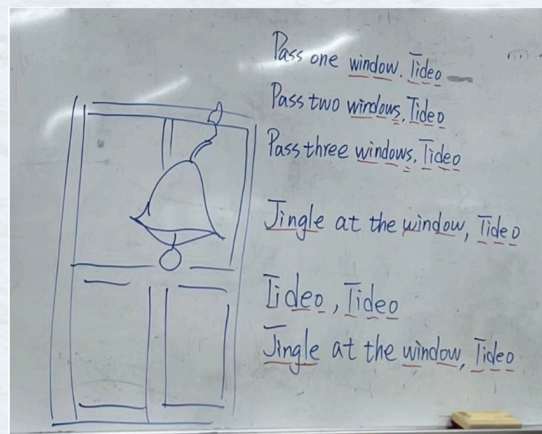 Pass one window, Tideo
Pass two windows, Tideo
Pass three windows, Tideo
Jingle at the window, Tideo
Tideo, Tideo
Jingle at the window, Tideo